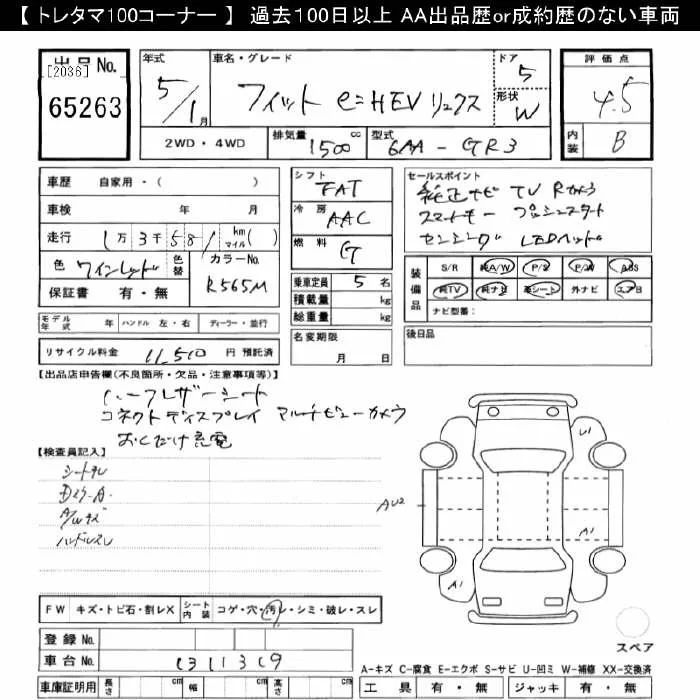 【 トレタマ100コーナー 】 過去100日以上 AA出品歴or成約歴のない車両
出品No.
[2036]
65263
年式 5/1月
車名・グレード フィット e:HEV リュクス
ドア 5
形状 W
2WD・4WD
排気量 1500 cc
型式 6AA-GR3
評価点 4.5
内装 B
車歴 自家用・( )
車検 年 月
走行 1万3千581 km マイル ( )
色 ワインレッド 色替 カラーNo. R565M
保証書 有・無
シフト FAT
冷房 AAC
燃料 G
乗車定員 5名
積載量 kg
総重量 kg
名変期限 月 日
セールスポイント
純正ナビ TV Rカメラ
スマートキー プッシュスタート
センシング LEDヘッド
装備品
S/R 純A/W P/S P/W ABS
純TV 純ナビ 革シート 外ナビ エアB
ナビ型番:
後日品
モデル年式 年 ハンドル 左・右 ディーラー・並行
リサイクル料金 11,510 円 預託済
【出品店申告欄(不良箇所・欠品・注意事項等)】
ハーフレザーシート
コネクトディスプレイ マルチビューカメラ
おくだけ充電
【検査員記入】
シートスレ
A/Wキズ
ハンドルスレ
U1
AU2
A1
A1
スペア
FW キズ・トビ石・割レX シート内装 コゲ・穴・汚レ・シミ・破レ・スレ
登録No.
車台No. (3113(9
車庫証明用 長さ cm 幅 cm 高さ cm
A−キズ C−腐食 E−エクボ S−サビ U−凹ミ W−補修 XX−交換済
工具 有・無 ジャッキ 有・無